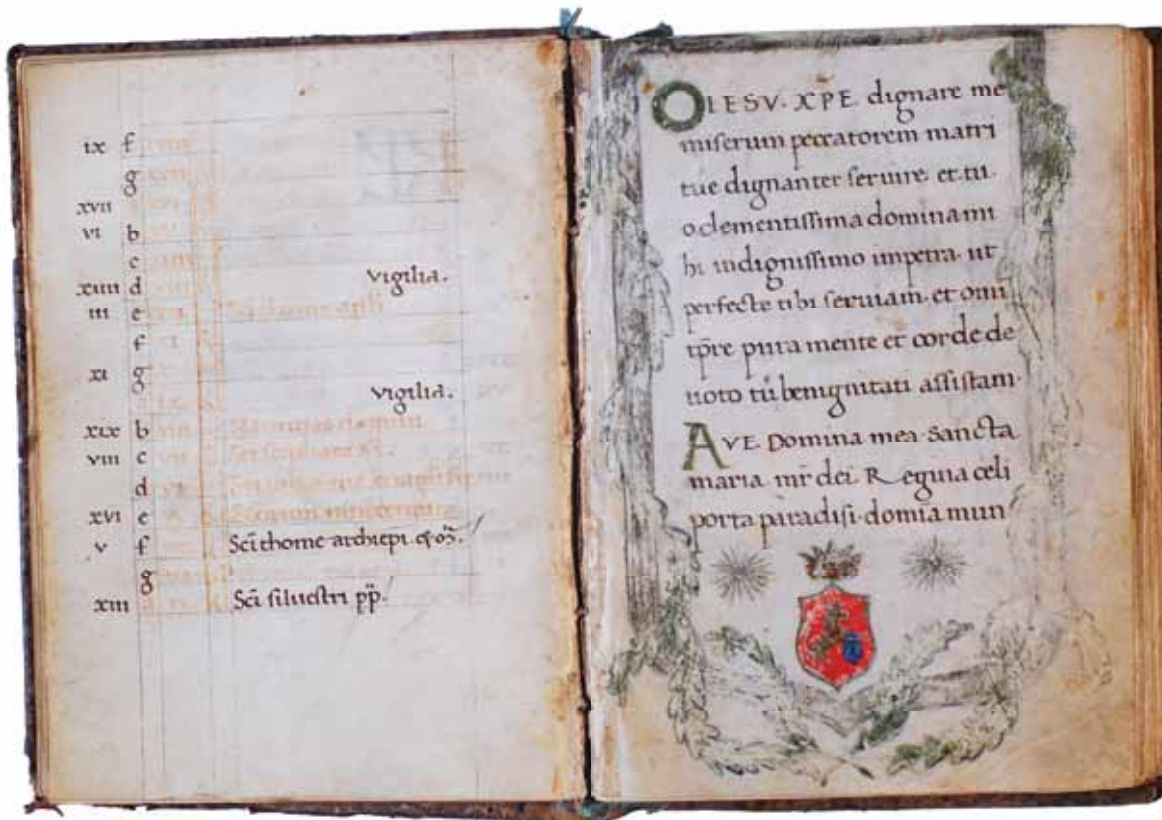 ix f
g
xvii
vi b
c
xiiii d Vigilia.
iii e Sci thome apli
f
xi g
Vigilia.
xix b
viii c Sci stephani
d
xvi e
v f Sc̄i thome archiep̄i
g
xiii Sc̄i siluestri pp̄.
O IESV. XP̄E. dignare me
miserum peccatorem matri
tue dignanter seruire. et tu.
o clementissima domina mi
hi indignissimo impetra. ut
perfecte tibi seruiam. et omi
tp̄re pura mente et corde de
uoto tū benignitati assistam.
AVE. Domina mea Sancta
maria mr̄ dei. Regina celi
porta paradisi. domia mun